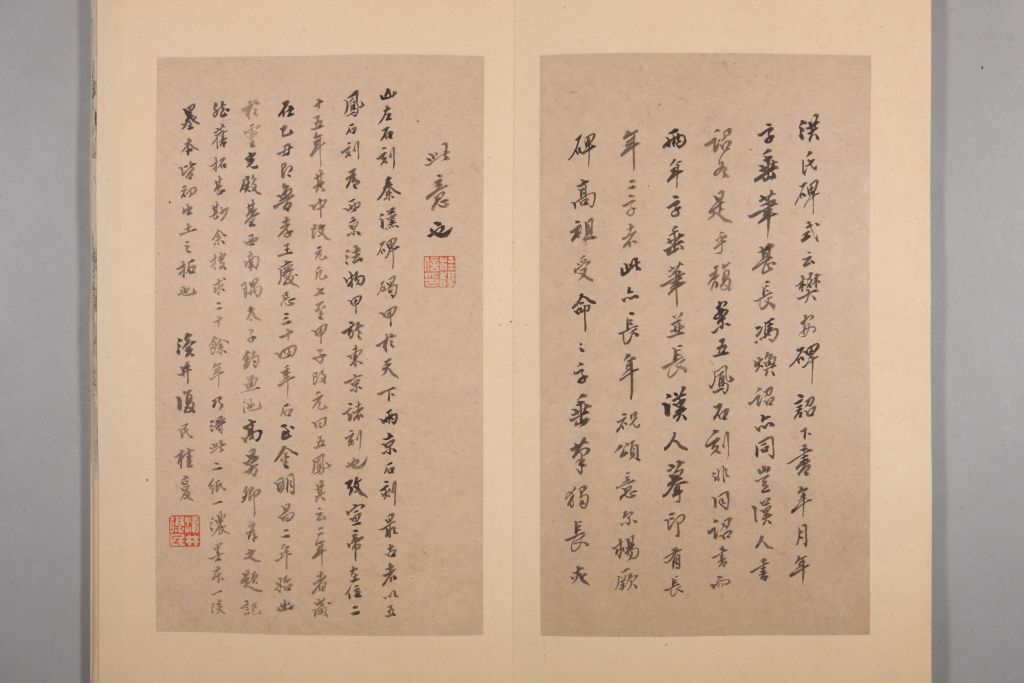 洪氏碑式云樊安碑詔下書年月年
字垂筆甚長馮煥詔亦同豈漢人書
詔如是乎馥案五鳳石刻非同詔書而
兩年字垂筆並長漢人摹印有長
年二字者此亦長年祝頌意尔楊厥
碑高祖受命命字垂筆獨長亦
此意也
山左石刻秦漢碑碣甲於天下兩京石刻最古者以五
鳳石刻為西京法物甲於東京諸刻也攷宣帝在位二
十五年其中改元凡七至甲子改元曰五鳳其云二年者歲
在乙丑即魯孝王慶忌三十四年石至金明昌二年始出
於靈光殿基西南隅太子釣魚池高曼卿有文題記
舊拓甚尠余搜求二十餘年乃得此二紙一濃墨本一淡
墨本皆初出土之拓也 瀆井復民桂馥